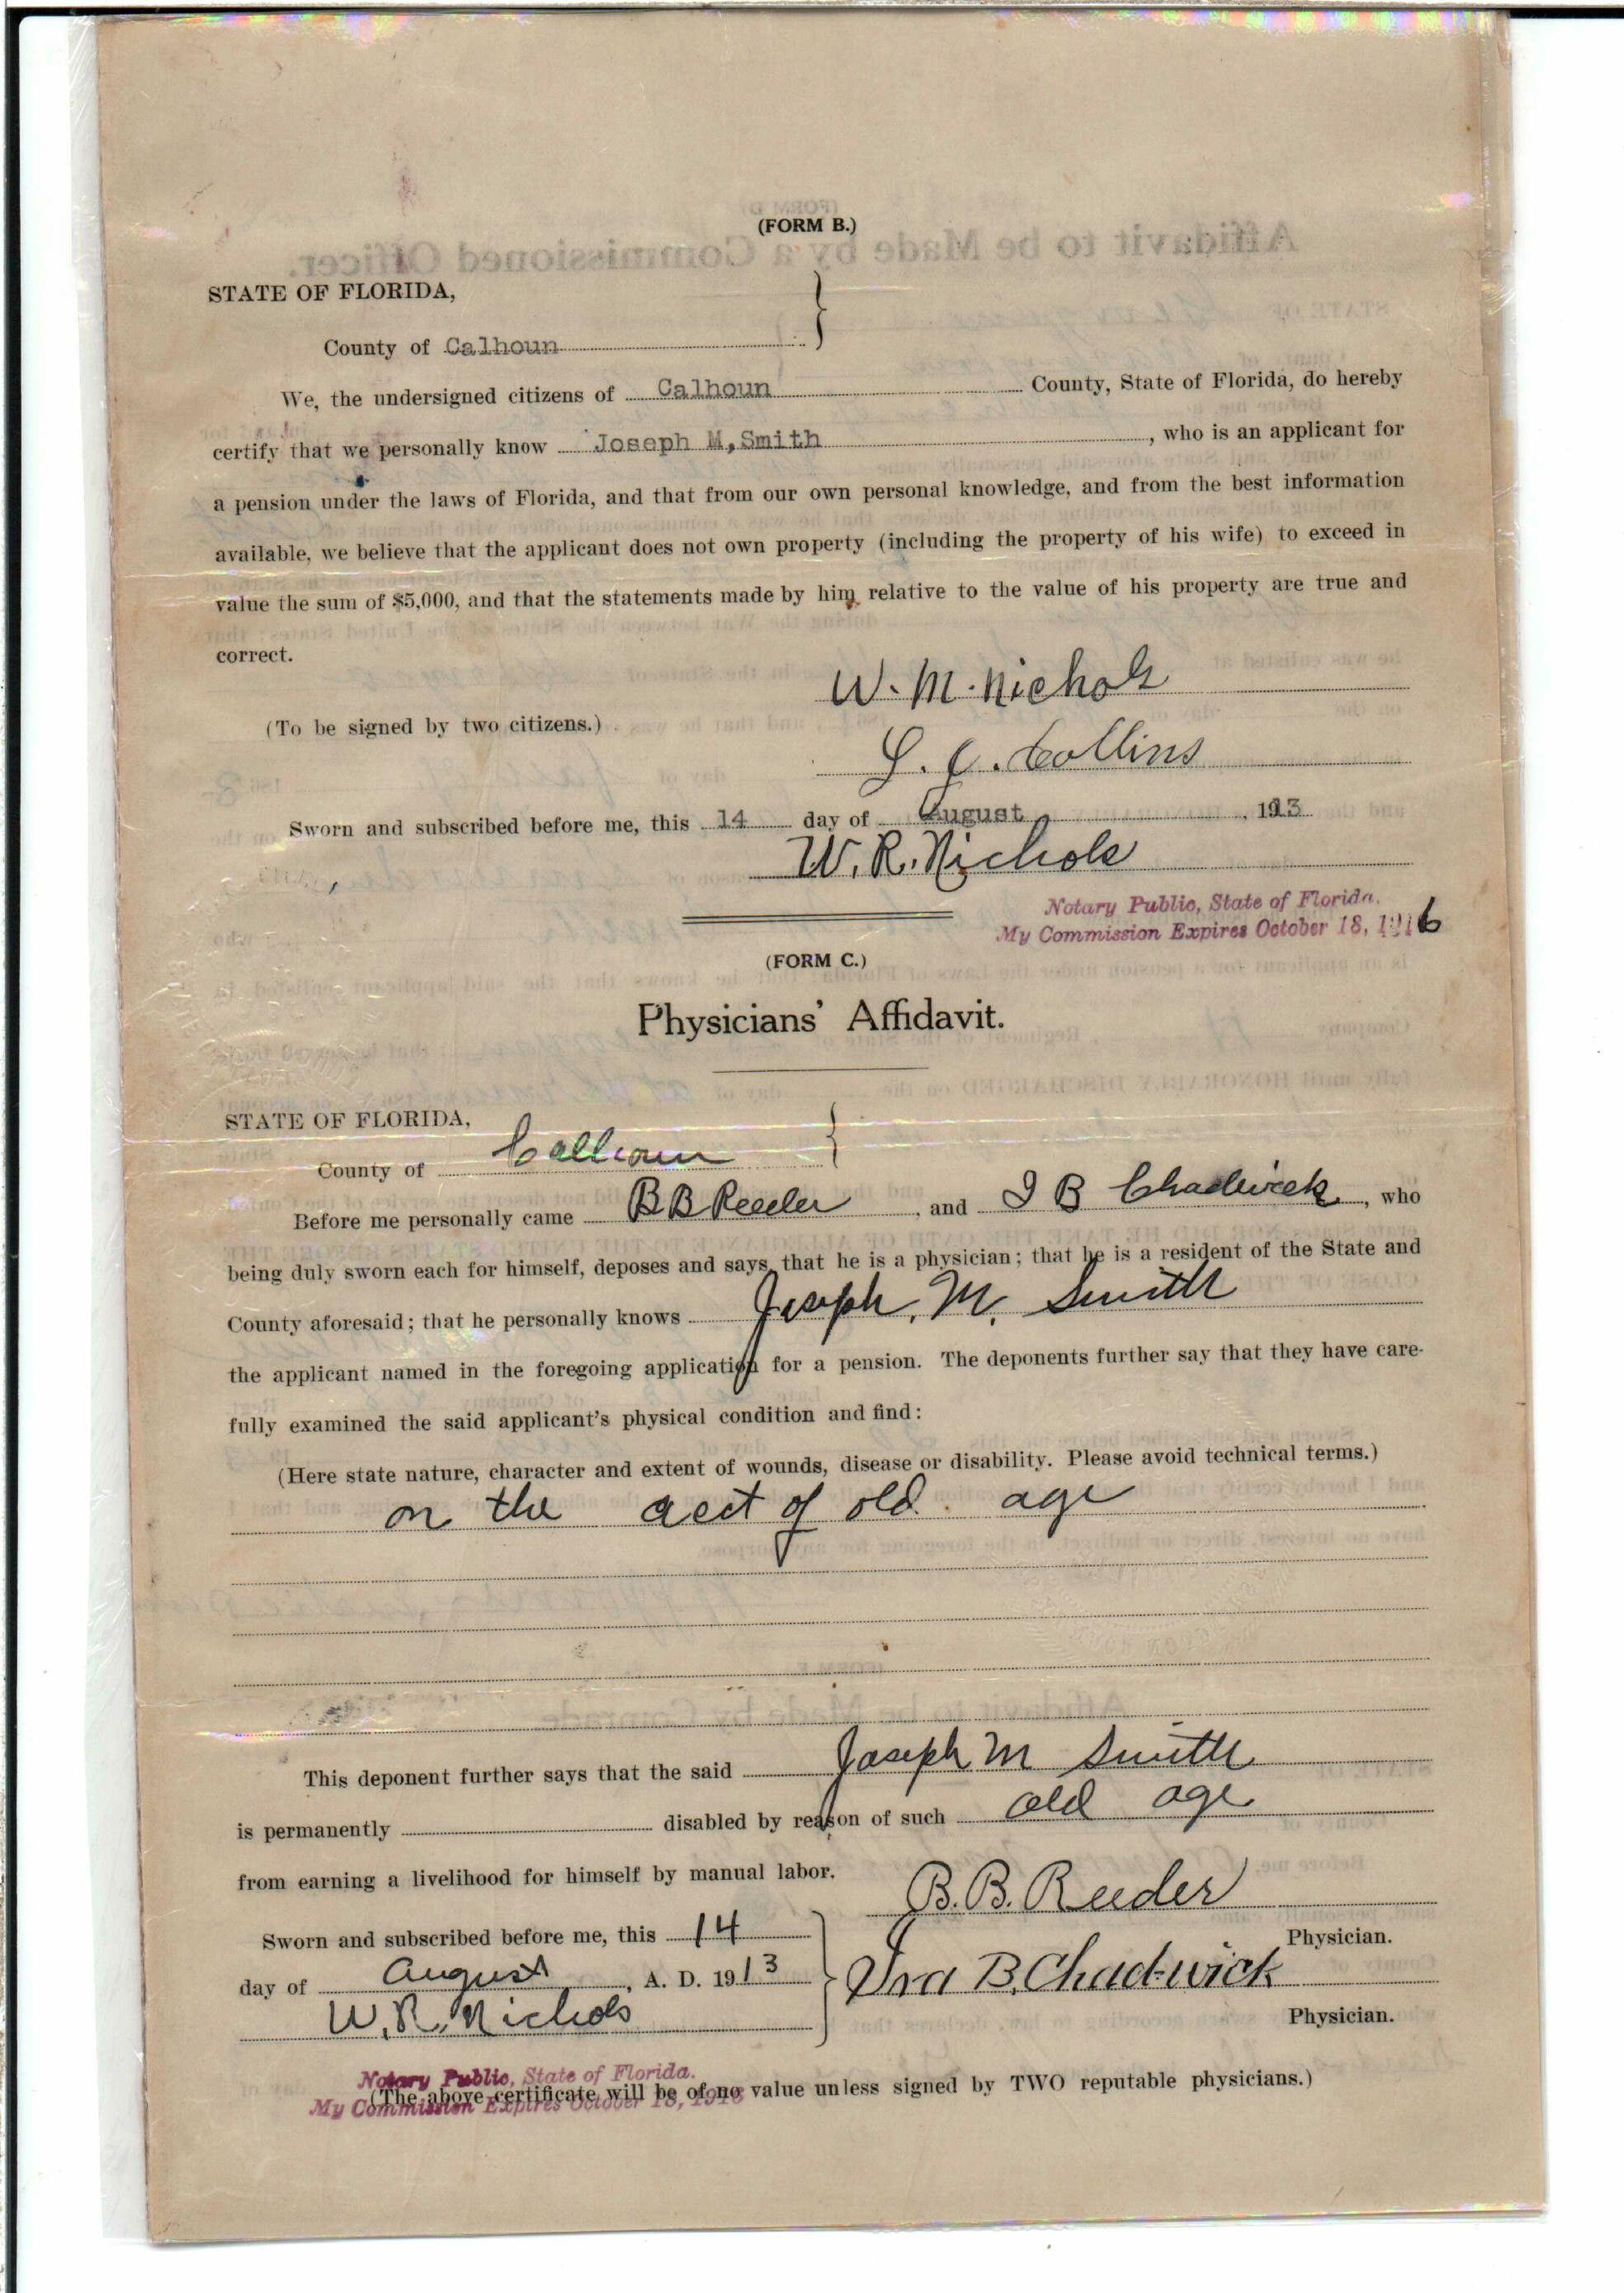 (FORM B.)
STATE OF FLORIDA,
County of Calhoun
We, the undersigned citizens of Calhoun County, State of Florida, do hereby
certify that we personally know Joseph M, Smith, who is an applicant for
a pension under the laws of Florida, and that from our own personal knowledge, and from the best information
available, we believe that the applicant does not own property (including the property of his wife) to exceed in
value the sum of $5,000, and that the statements made by him relative to the value of his property are true and
correct.
W. M. Nichols
(To be signed by two citizens.)
Collins
Sworn and subscribed before me, this 14 day of August, 1913
W. R. Nichols
Notary Public, State of Florida.
My Commission Expires October 18, 1916
(FORM C.)
Physicians' Affidavit.
STATE OF FLORIDA,
County of Calhoun
Before me personally came B B Reeder, and I B Chadwick, who
being duly sworn each for himself, deposes and says that he is a physician; that he is a resident of the State and
County aforesaid; that he personally knows Joseph. M. Smith
the applicant named in the foregoing application for a pension. The deponents further say that they have care-
fully examined the said applicant's physical condition and find:
(Here state nature, character and extent of wounds, disease or disability. Please avoid technical terms.)
on the act of old age
This deponent further says that the said Joseph M Smith
is permanently disabled by reason of such old age
from earning a livelihood for himself by manual labor.
B. B. Reeder
Sworn and subscribed before me, this 14
Physician.
day of August, A. D. 1913
Ira B. Chadwick
W. R. Nichols
Physician.
Notary Public, State of Florida.
(The above certificate will be of no value unless signed by TWO reputable physicians.)
My Commission Expires October 18, 1916